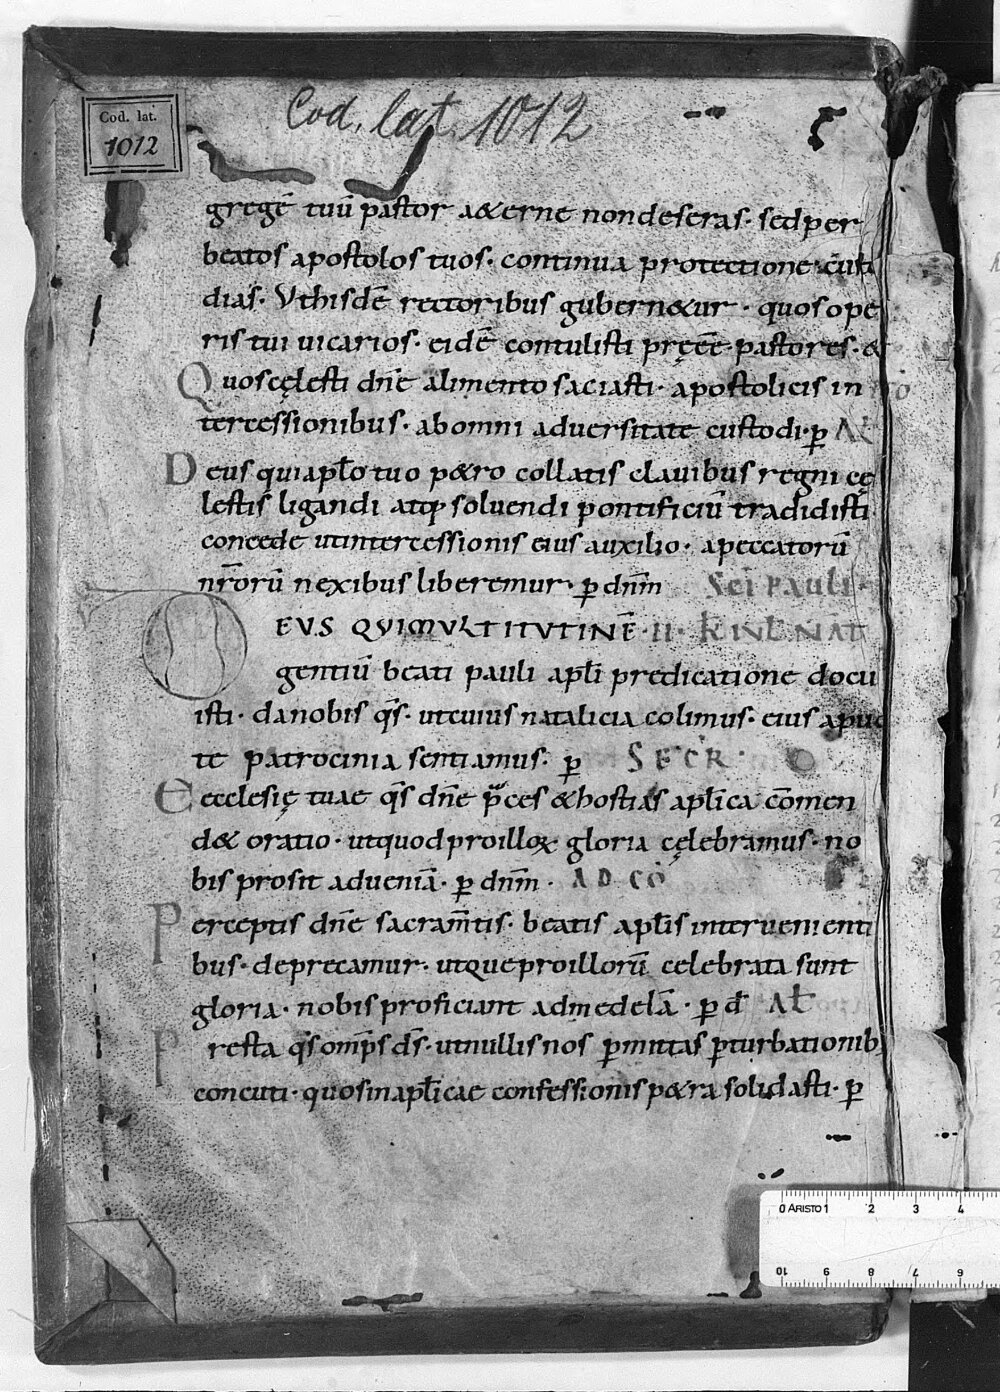 Cod. lat. 1012
Cod. lat.
1012
gregē tuū pastor a&erne non deseras· sed per
beatos apostolos tuos· continua protectione custo
dias· Vt hisdē rectoribus gubern&ur· quos ope
ris tui uicarios· eidē contulisti pręēē pastores· &
Quos cęlesti dn̄e alimento saciasti· apostolicis in
tercessionibus· ab omni aduersitate custodi· p̲ Al̄
Deus qui apl̄o tuo p&ro collatis clauibus regni cę
lestis ligandi atq; soluendi pontificiū tradidisti
concede ut intercessionis eius auxilio· a peccatorū
nr̄orū nexibus liberemur· p̲ dnm̄ Sc̄i Pauli·
DEVS QVI MVLTITVTINĒ· II· Kl̄
gentiū beati pauli apl̄i predicatione docu
isti· da nobis qs̄· ut cuius natalicia colimus· eius apud
te patrocinia sentiamus· p̲ SECR̄·
Eecclesię tuae qs̄ dn̄e p̄ces & hostias apl̄ica c̄omen
d& oratio· ut quod pro illoꝝ gloria cęlebramus· no
bis prosit ad ueniā· p̲ dnm̄· AD CŌ
Perceptis dn̄e sacram̄tis· beatis apl̄is interuenienti
bus· deprecamur· ut que pro illorū celebrata sunt
gloria· nobis proficiant ad medelā· p̲ d̄ Al̄
Presta qs̄ omp̄s ds̄· ut nullis nos p̲mittas p̲turbationib;
concuti· quos in apl̄icae confessionis p&ra solidasti· p̲
0 ARISTO 1 2 3 4
10 9 8 7 6